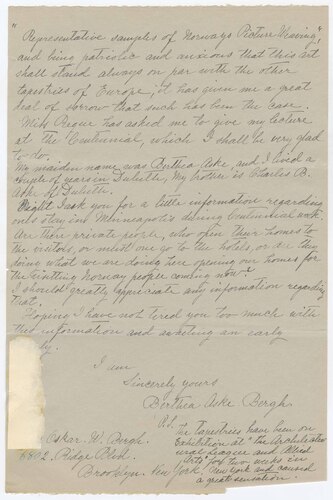 "Representative samples of Norways Picture Weaving,"
and being patriotic and anxious that this art
shall stand always on par with the other
tapestries of Europe; It has given me a great
deal of sorrow that such has been the case.
Miss has asked me to give my lecture
at the Centennial, which I shall be very glad
to do.
My maiden name was Berthea Aske, and I lived a
couple of years in Duluth, My brother is Charles B.
Aske of Duluth.
Might I ask you for a little information regarding
ones stay in Minneapolis during Centennial week
Are there private people, who open their homes to
the visitors, or must one go to the hotels, or are they
doing what we are doing here opening our homes for
the visiting Norway people coming now?
I should greatly appreciate any information regarding
that.
Hoping I have not tired you too much with
this information and awaiting an early
I am
Sincerely yours
Berthea Aske Bergh.
P.S.
The tapestries have been on
Exhibition at "The Architect
ural League and
for two weeks in
New York and caused
a great sensation.
Oskar H. Bergh.
6802. Ridge Blvd.
Brooklyn. New York.